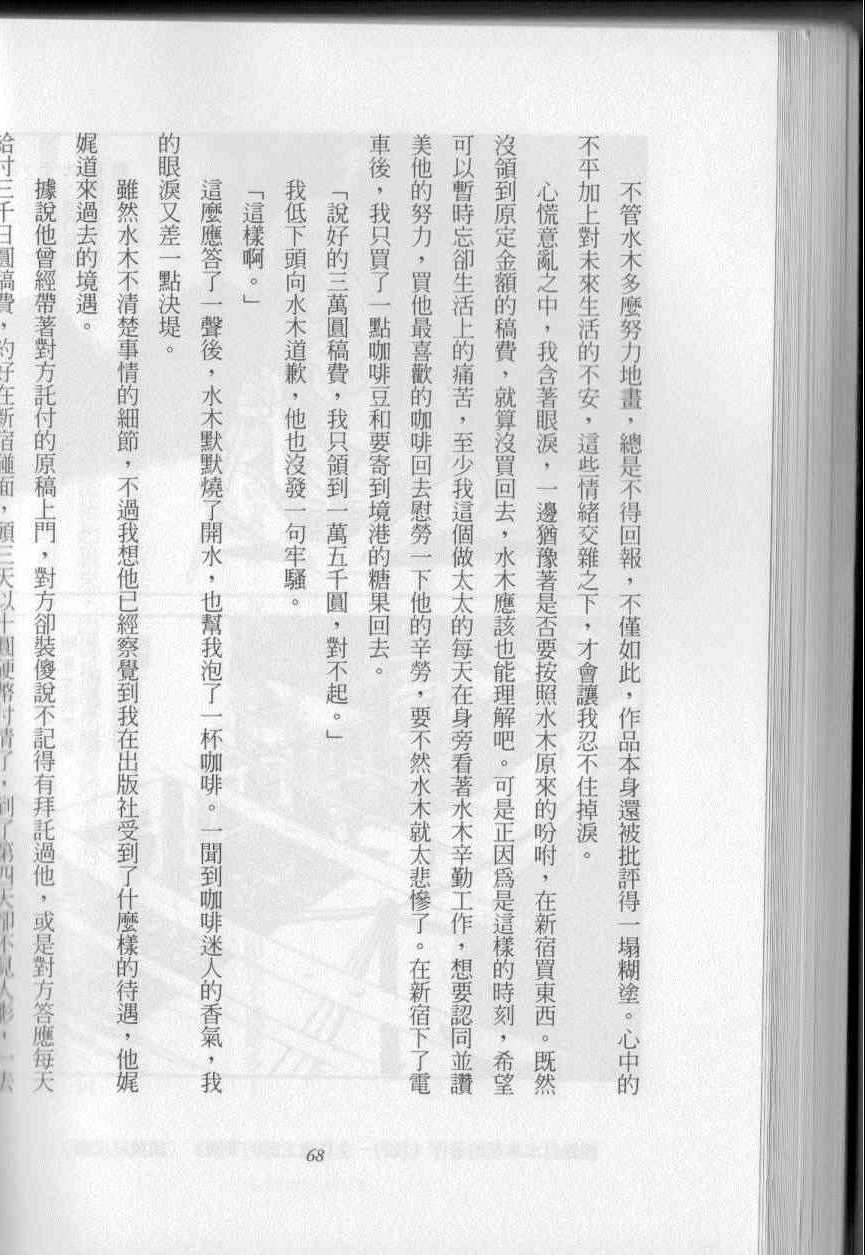 不管水木多麼努力地畫，總是不得回報，不僅如此，作品本身還被批評得一塌糊塗。心中的
不平加上對未來生活的不安，這些情緒交雜之下，才會讓我忍不住掉淚。
心慌意亂之中，我含著眼淚，一邊猶豫著是否要按照水木原來的吩咐，在新宿買東西。既然
沒領到原定金額的稿費，就算沒買回去，水木應該也能理解吧。可是正因爲是這樣的時刻，希望
可以暫時忘卻生活上的痛苦，至少我這個做太太的每天在身旁看著水木辛勤工作，想要認同並讚
美他的努力，買他最喜歡的咖啡回去慰勞一下他的辛勞，要不然水木就太悲慘了。在新宿下了電
車後，我只買了一點咖啡豆和要寄到境港的糖果回去。
「說好的三萬圓稿費，我只領到一萬五千圓，對不起。」
我低下頭向水木道歉，他也沒發一句牢騷。
「這樣啊。」
這麼應答了一聲後，水木默默燒了開水，也幫我泡了一杯咖啡。一聞到咖啡迷人的香氣，我
的眼淚又差一點決堤。
雖然水木不清楚事情的細節，不過我想他已經察覺到我在出版社受到了什麼樣的待遇，他娓
娓道來過去的境遇。
據說他曾經帶著對方託付的原稿上門，對方卻裝傻說不記得有拜託過他，或是對方答應每天
給付三千日圓稿費，約好在新宿碰面，頭三天以十圓硬幣付清了，到了第四天卻不見人影，一去
68